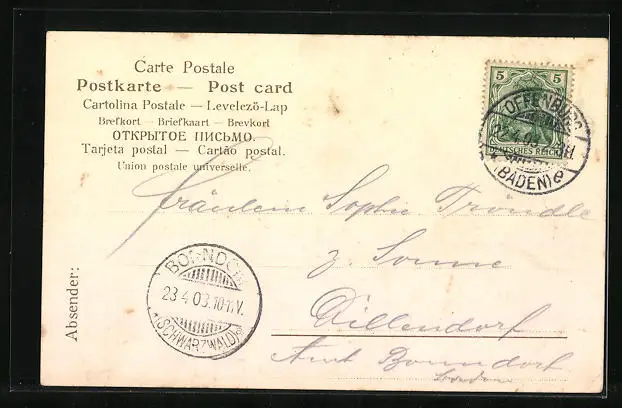 Carte Postale
Postkarte — Post card
Cartolina Postale — Levelező-Lap
Brefkort — Briefkaart — Brevkort
ОТКРЫТОЕ ПИСЬМО.
Tarjeta postal — Cartão postal.
Union postale universelle.
5 5
DEUTSCHES REICH
OFFENBURG
(BADEN)
Fräulein Sophie Tröndle
z. Sonne
Dillendorf
Amt Bonndorf
BONNDORF
23.4.03.10-11.V.
(SCHWARZWALD)
Absender: